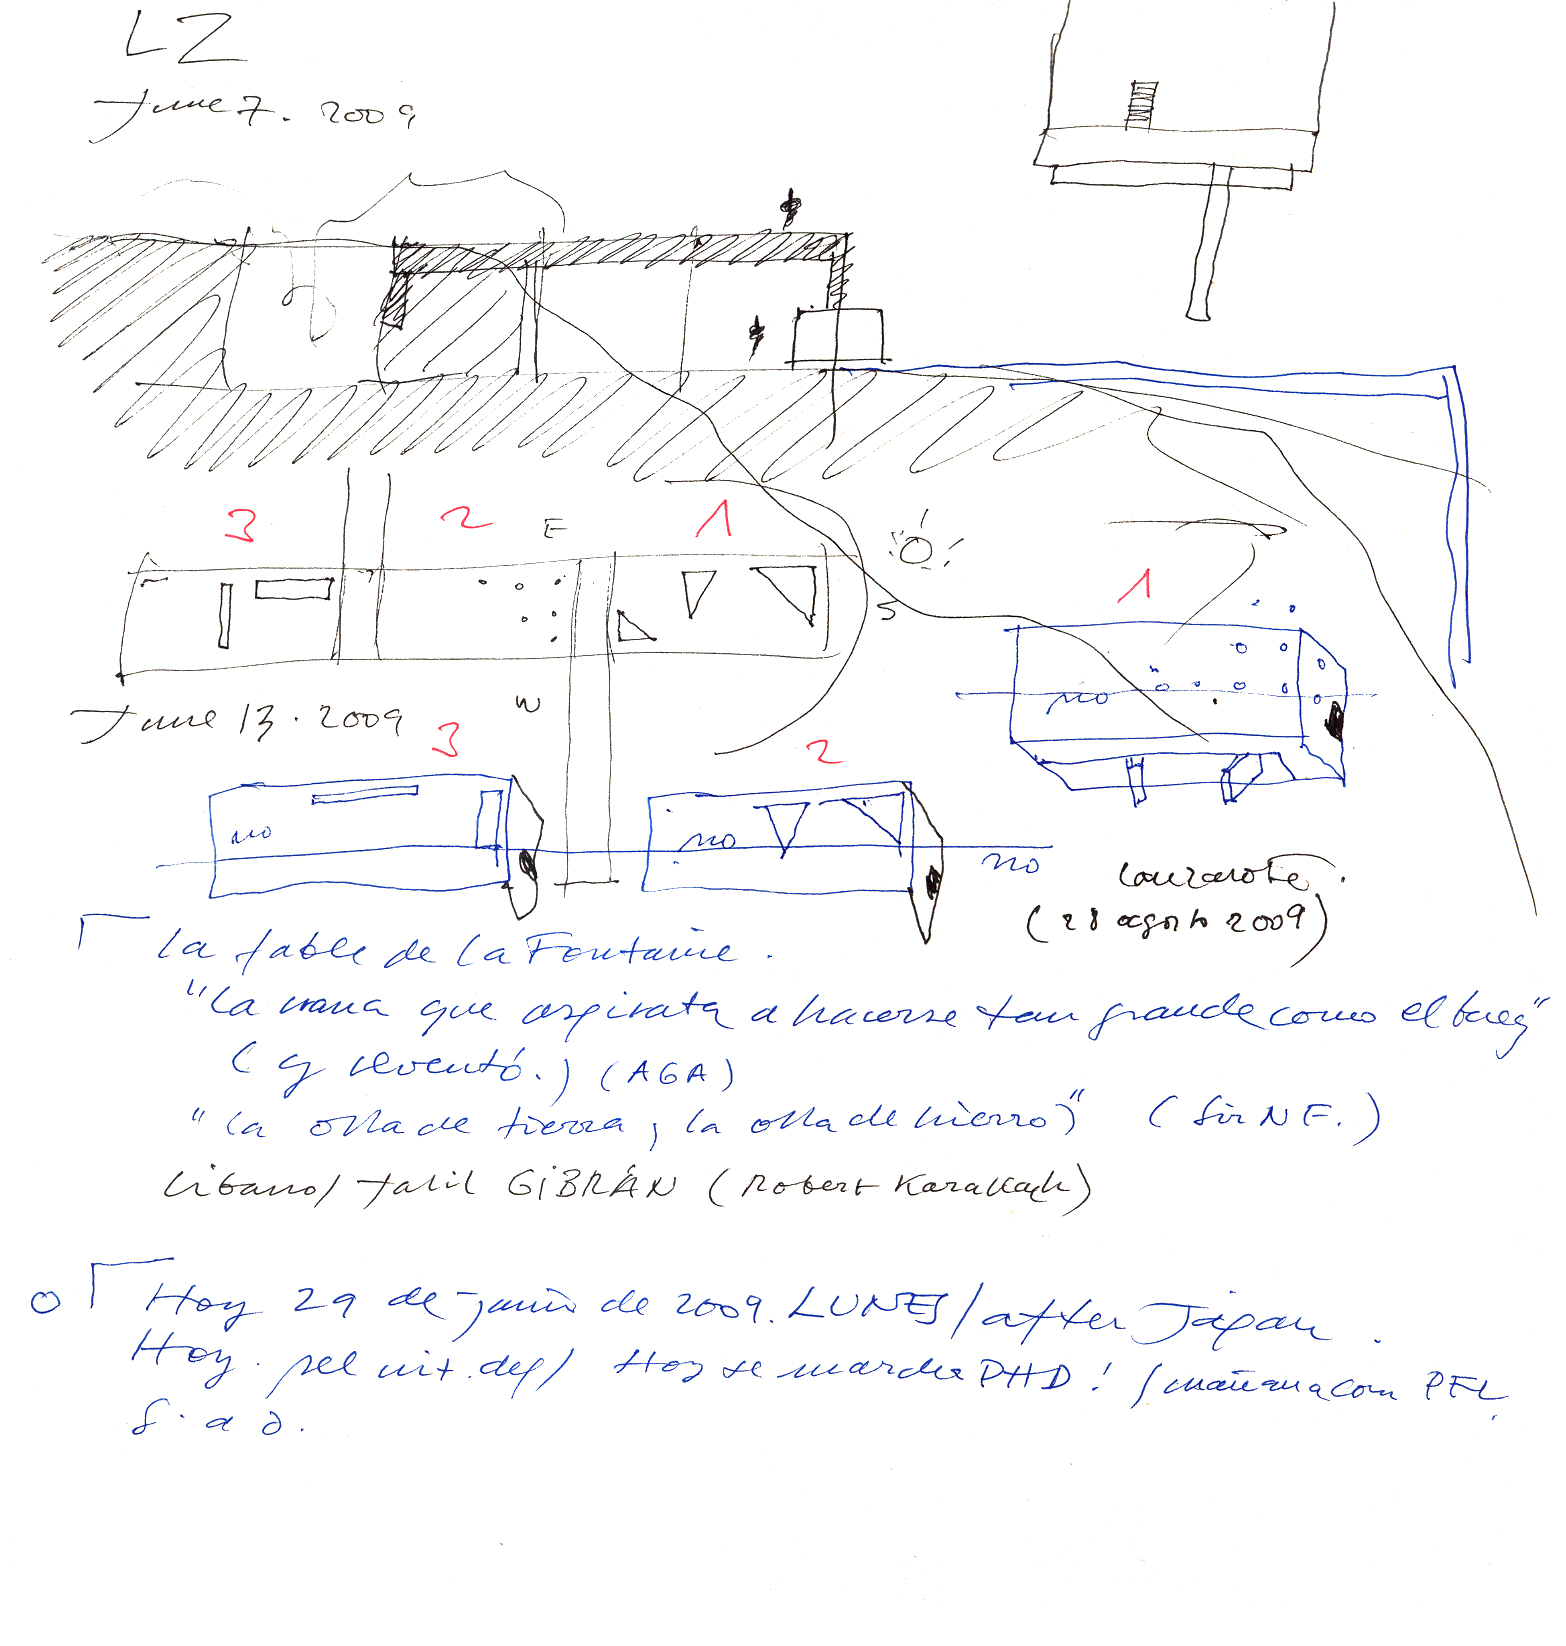 LZ
June 7. 2009
3 2 E 1
S
1
June 13. 2009
W
3 2
no
no no no
Lanzarote.
(28 agosto 2009)
La fable de La Fontaine.
"La rana que aspiraba a hacerse tan grande como el buey"
(y reventó.) (AGA)
"La olla de tierra, la olla de hierro" (Sir N F.)
Libano/ Jalil GIBRÁN (Robert
Hoy 29 de junio de 2009. LUNES/after Japan.
Hoy. Hoy se marcha PHD! /mañana con PFL.